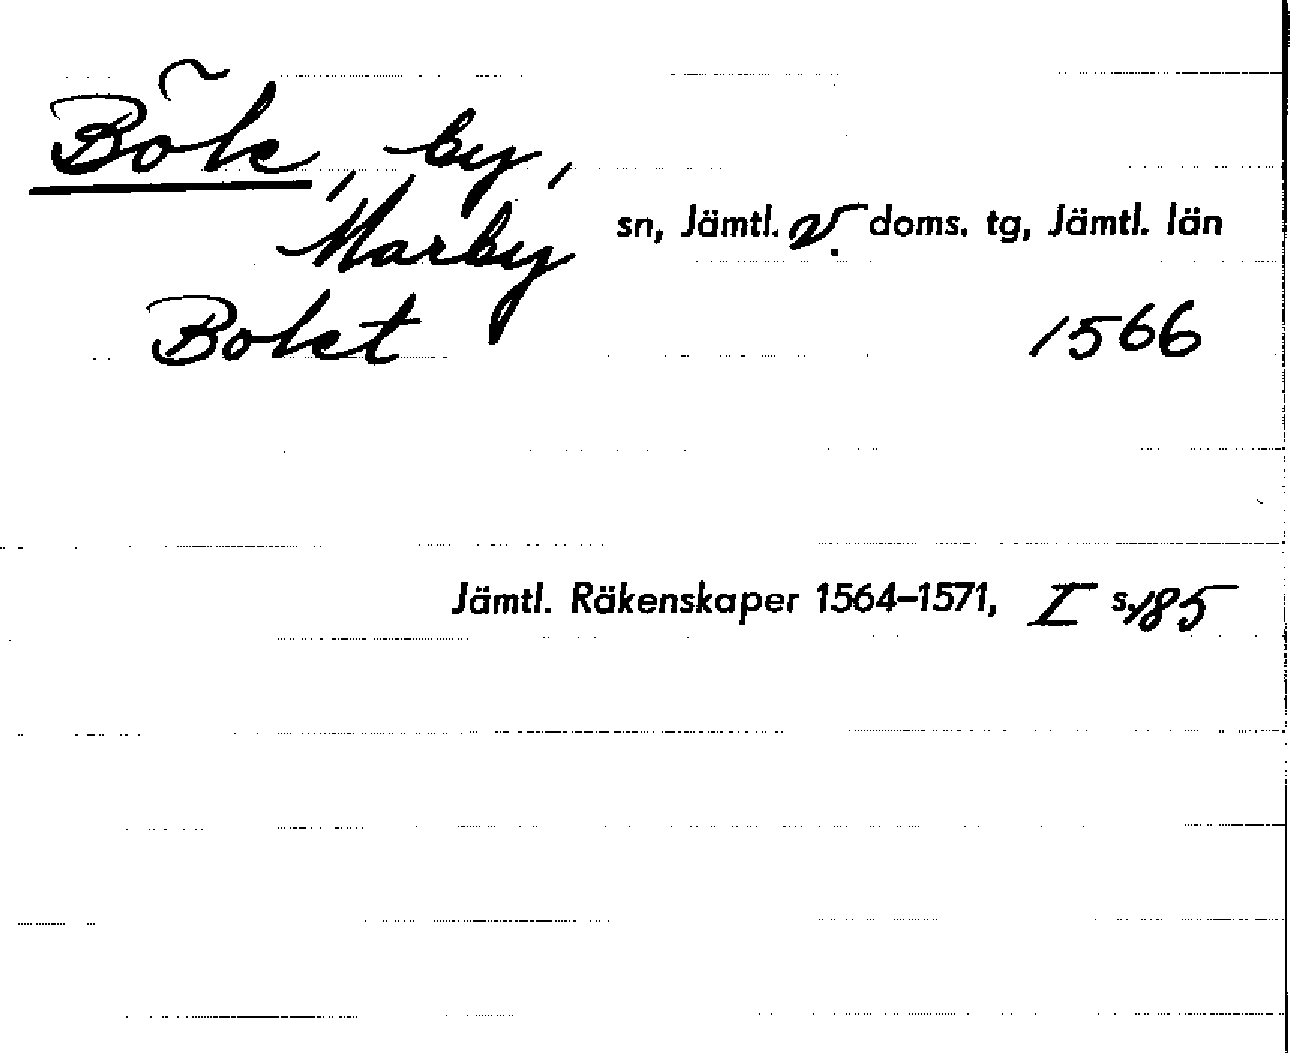 Böle, by,
Marby sn, Jämtl. v. doms. tg, Jämtl. län
Bolet 1566
Jämtl. Räkenskaper 1564–1571, I s. 185